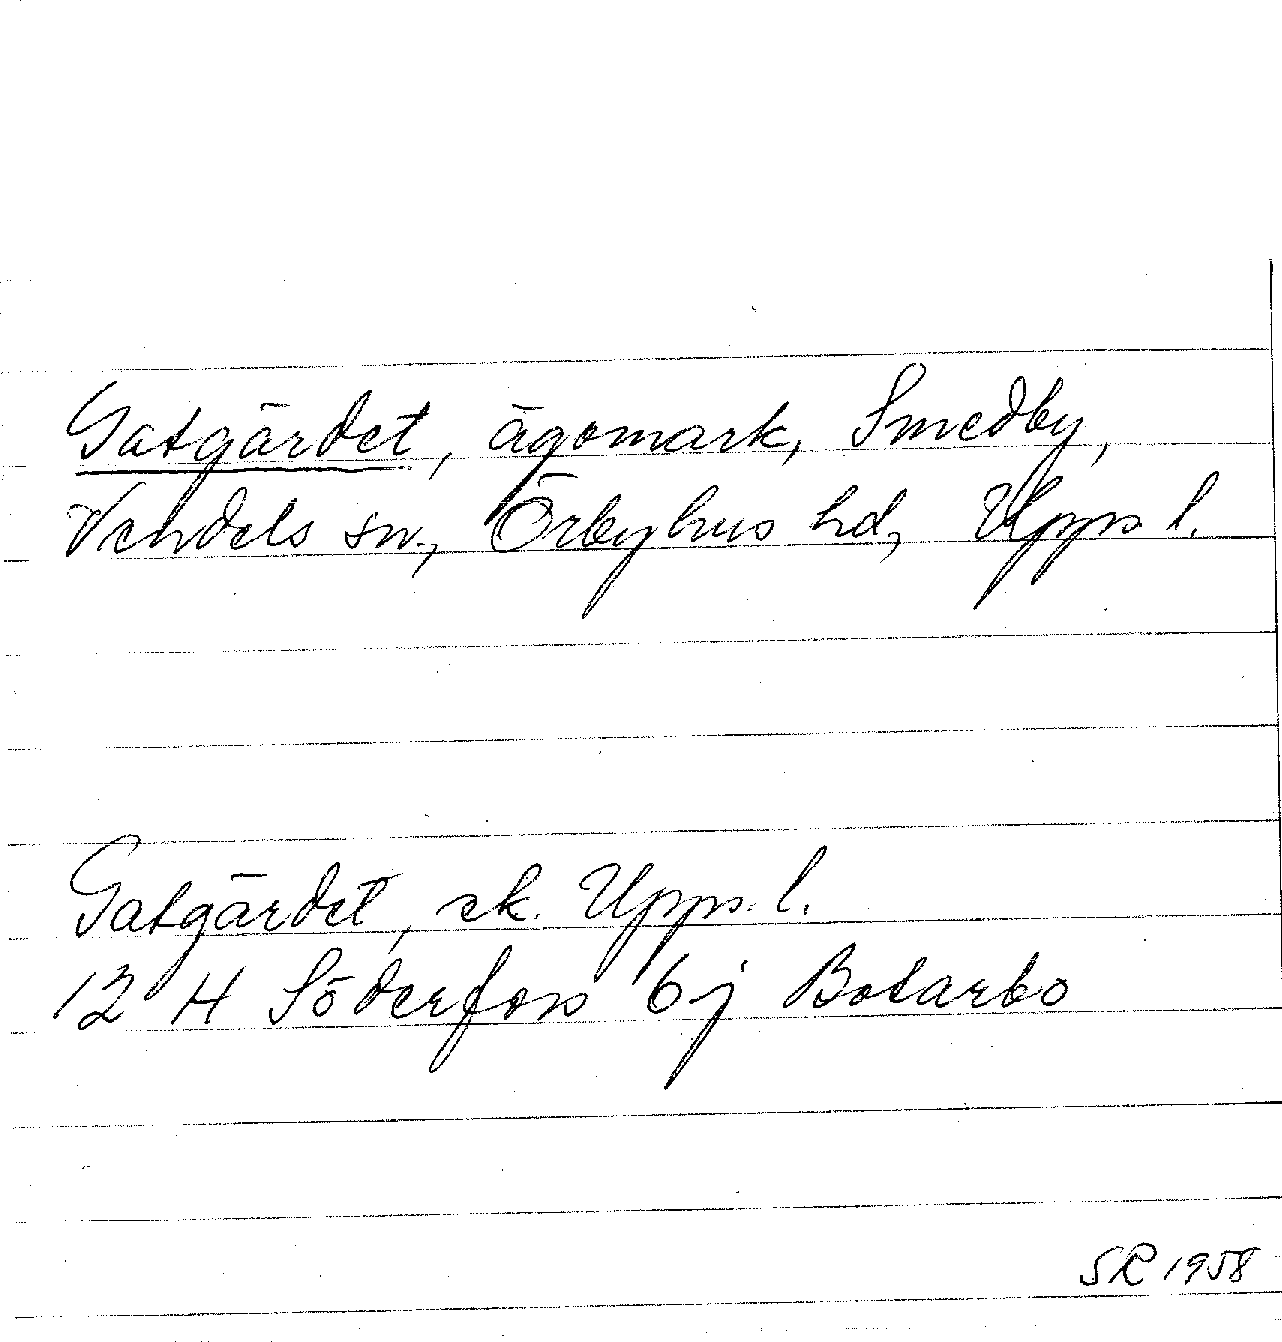 Gatgärdet, ägomark, Smedby,
Vendels sn., Örbyhus hd, Upps l.
Gatgärdet, ek. Upps. l.
12 H Söderfors 6j Botarbo
SR 1958